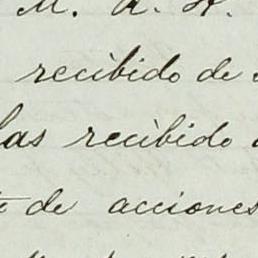 M. A. H.
recibido de
las recibido
de acciones